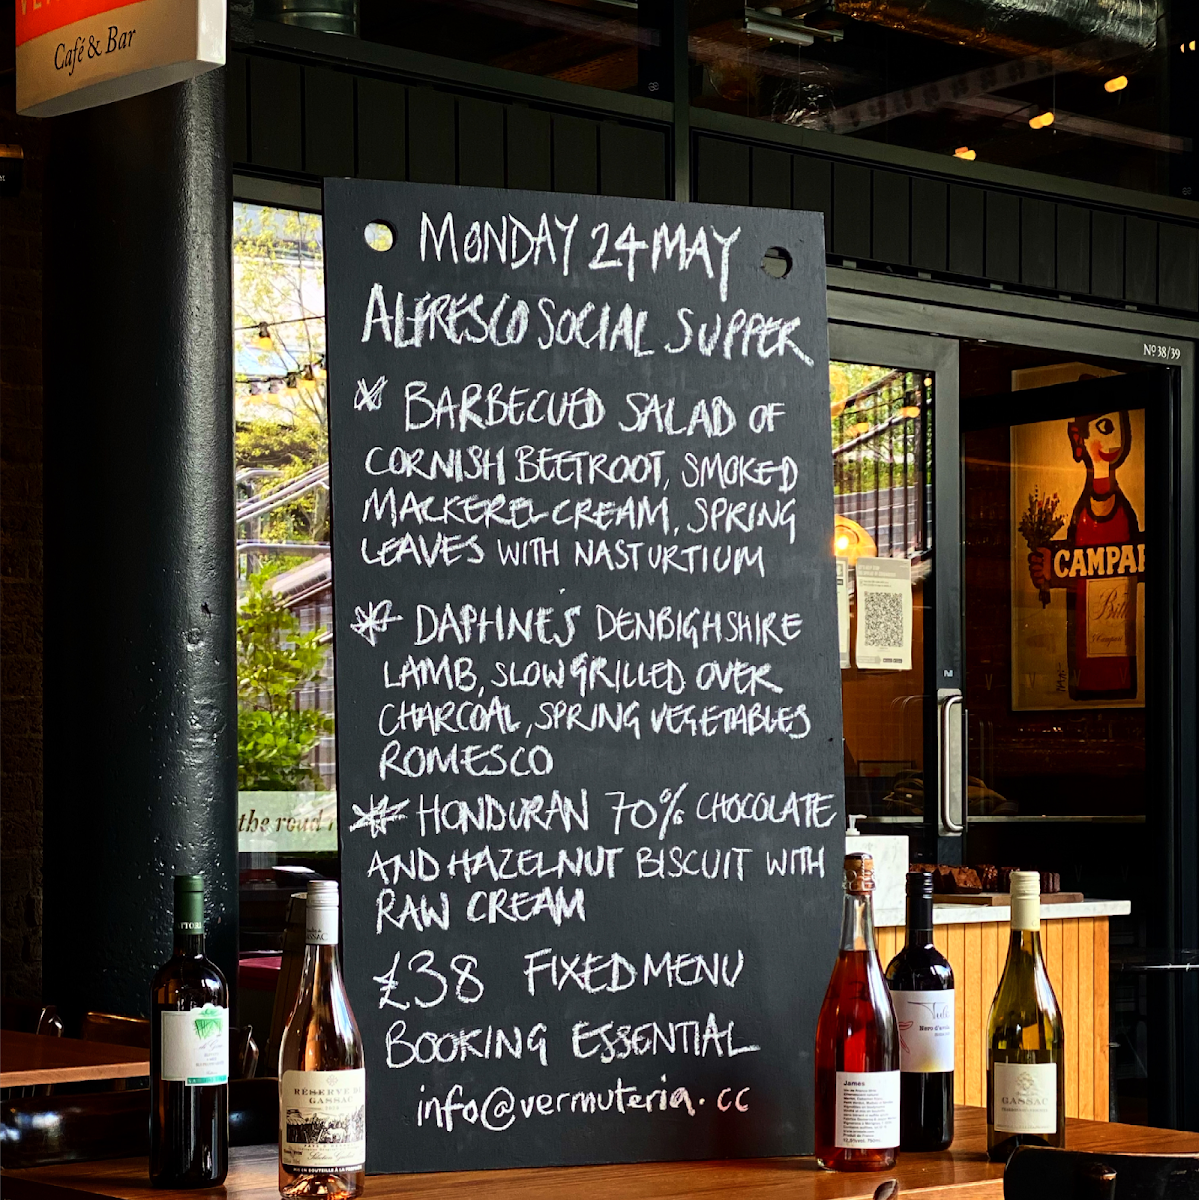 Café & Bar
Nº 38/39
MONDAY 24 MAY
ALFRESCO SOCIAL SUPPER
BARBECUED SALAD OF
CORNISH BEETROOT, SMOKED
MACKEREL CREAM, SPRING
LEAVES WITH NASTURTIUM
DAPHNE'S DENBIGHSHIRE
LAMB, SLOW GRILLED OVER
CHARCOAL, SPRING VEGETABLES
ROMESCO
HONDURAN 70% CHOCOLATE
AND HAZELNUT BISCUIT WITH
RAW CREAM
£38 FIXED MENU
BOOKING ESSENTIAL
info@vermuteria.cc
CAMPA
the road
RÉSERVE
GASSAC
James
Nero d'
GASSAC